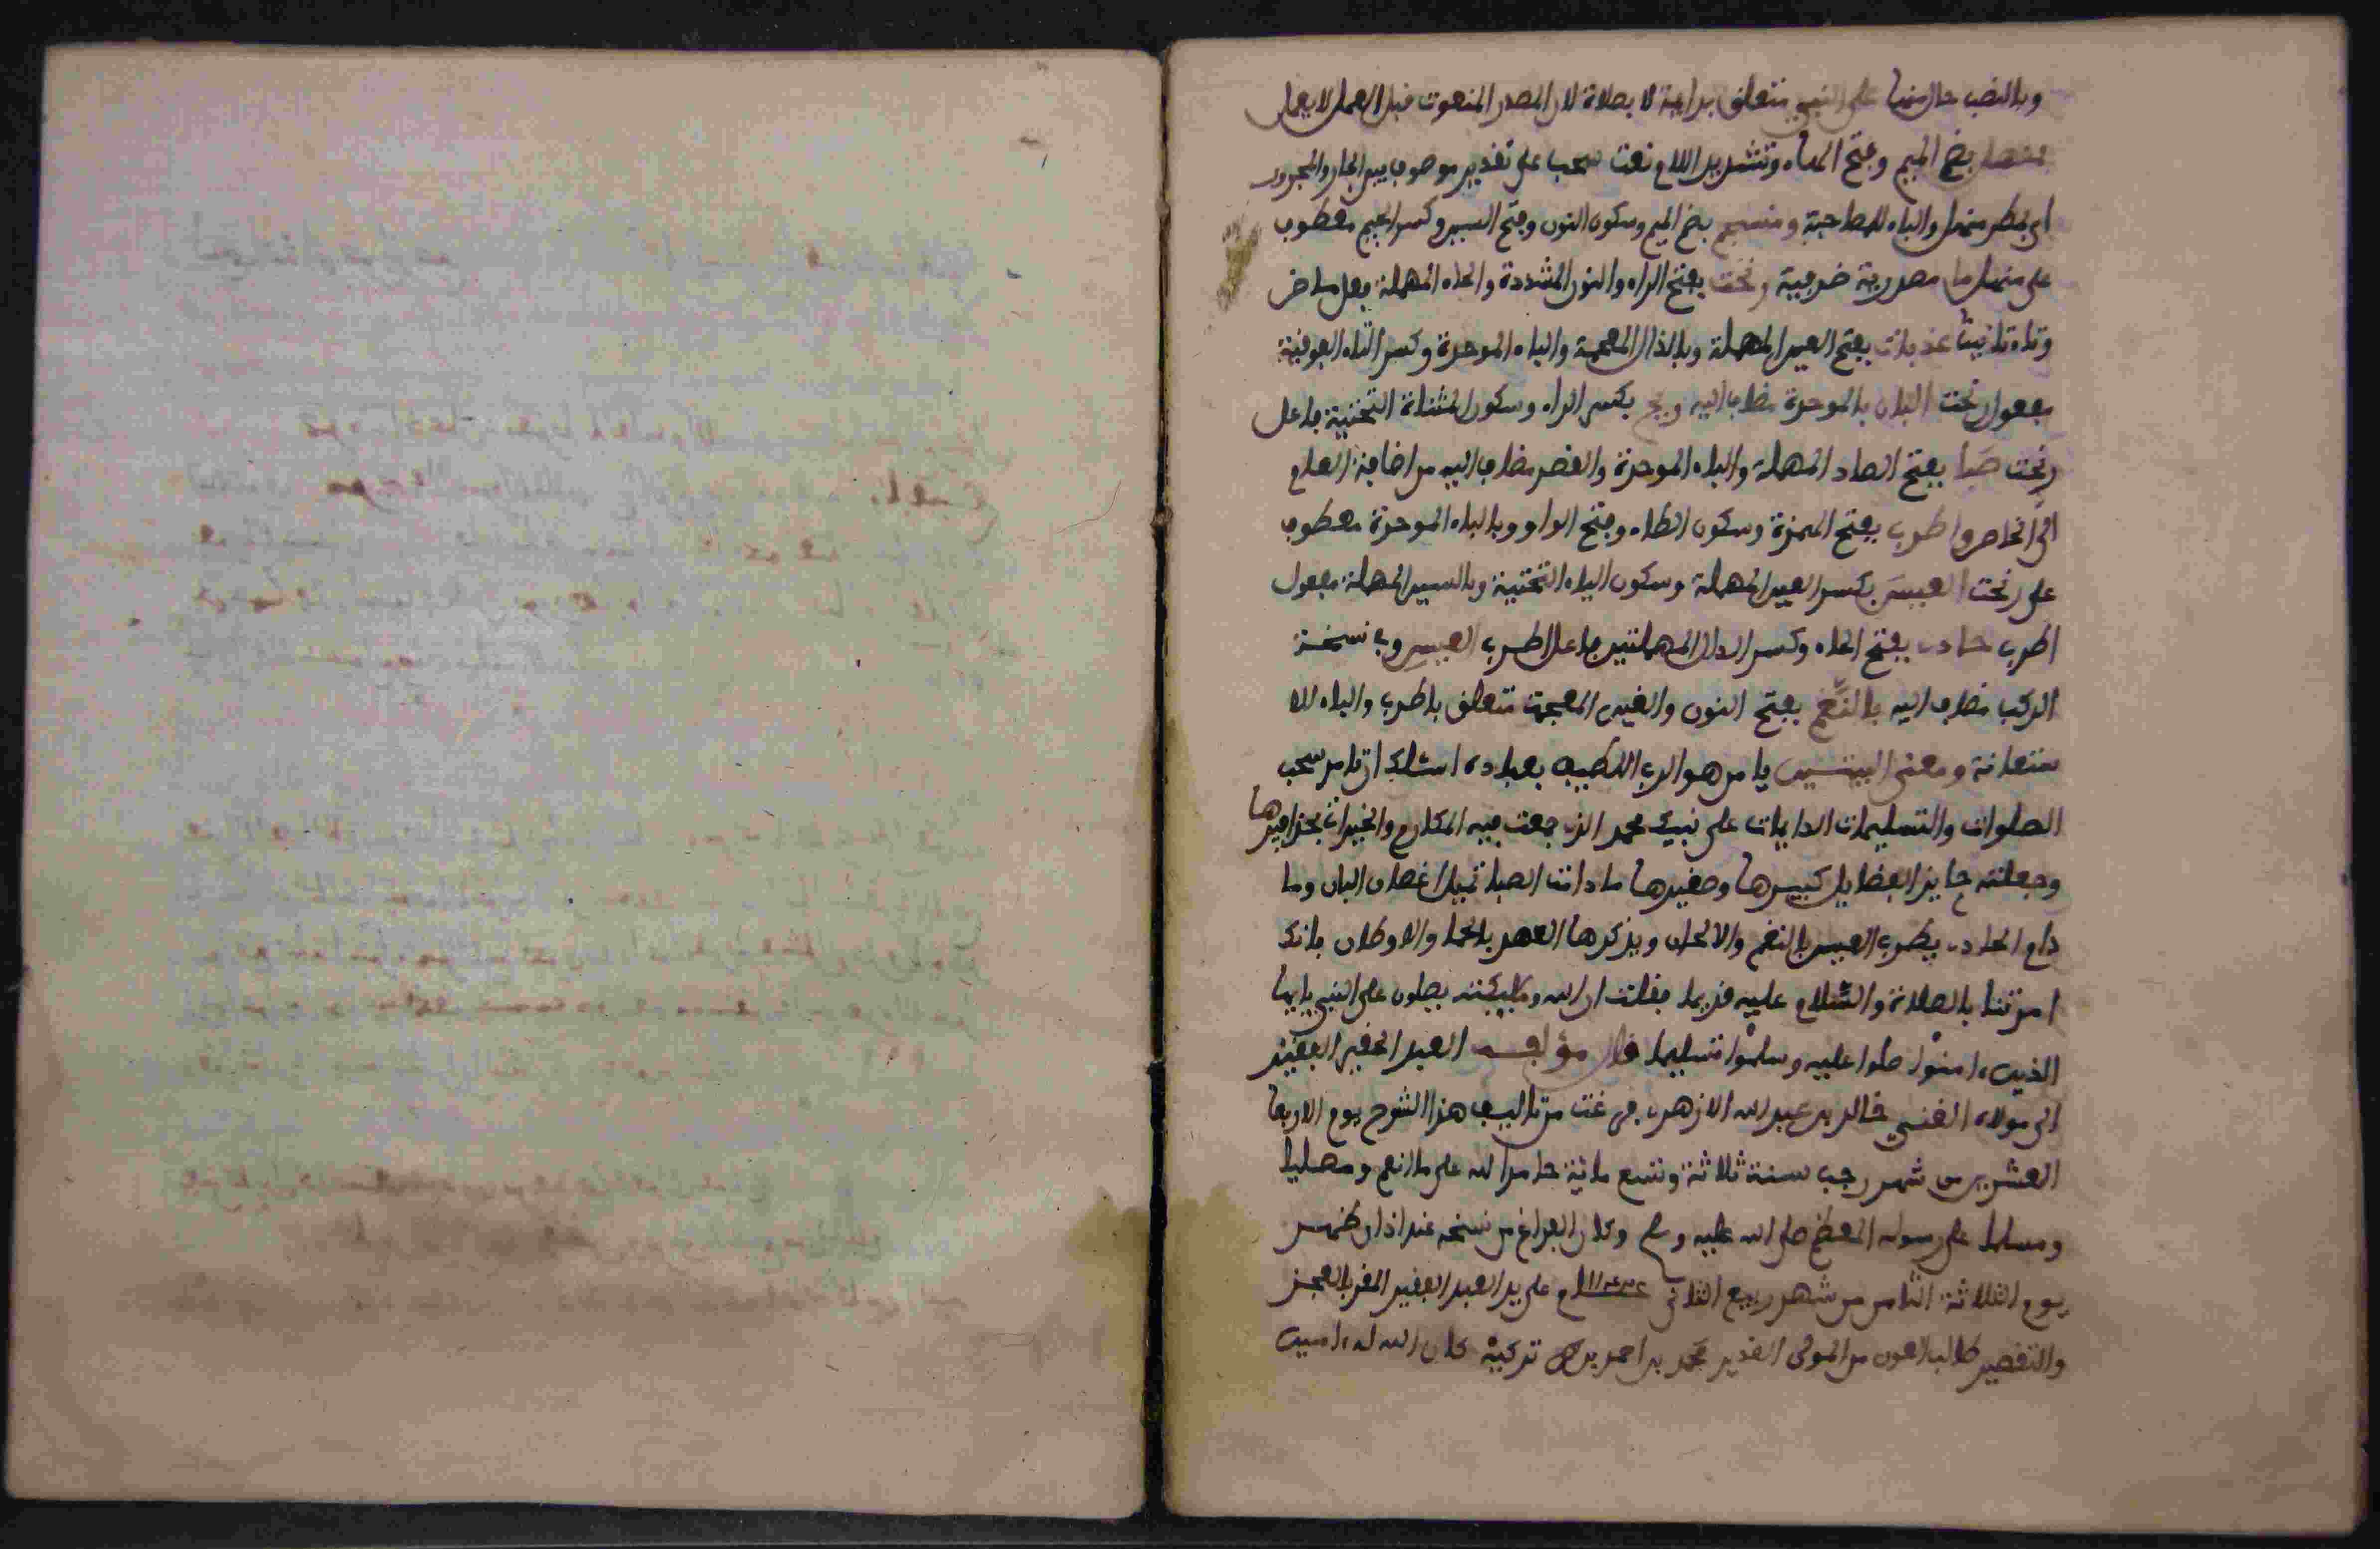 وبالنصب حال منها على النبي متعلق بدايمة لا بصلاة لان المصدر المنعوت قبل العمل لا يعمل
بمنهل بضم الميم وفتح الهاء وتشديد اللام نعت سحب على تقدير موصوف بين الجار والمجرور
اي بمطر منهل والباء للمصاحبة ومنسجم بضم الميم وسكون النون وفتح السين وكسر الجيم معطوف
على منهل ما مصدرية ظرفية رنحت بفتح الراء والنون المشددة والحاء المهملة فعل ماض
وتاء تانيث عذبات بفتح العين المهملة وبالذال المعجمة والباء الموحدة وكسر التاء الفوقية
مفعول رنحت البان بالموحدة مضاف اليه ريح بكسر الراء وسكون المثناة التحتية فاعل
رنحت صبا بفتح الصاد المهملة والباء الموحدة والقصر مضاف اليه من اضافة العام
الى الخاص واطرب بفتح الهمزة وسكون الطاء وفتح الراء وبالباء الموحدة معطوف
على رنحت العيس بكسر العين المهملة وسكون الياء التحتية وبالسين المهملة مفعول
اطرب حادي بفتح الحاء وكسر الدال المهملتين فاعل اطرب العيس وفي نسخة
الركب مضاف اليه بالنغم بفتح النون والغين المعجمة متعلق باطرب والباء للا
ستعانة ومعنى البيتين يا من هو الرب اللطيف بعباده اسئلك ان تامر سحب
الصلوات والتسليمات الدايمات على نبيك محمد الذي جمعت فيه المكارم والخيرات بحذافيرها
وجعلته حايز الفضايل كبيرها وصغيرها ما دامت الصبا تميل اغصان البان وما
دام الحادي يطرب العيس بالنغم والالحان ويذكرها العهد بالحما والاوطان فانك
امرتنا بالصلاة والسلام عليه قديما فقلت ان الله وملئكته يصلون على النبي يايها
الذين ءامنوا صلوا عليه وسلموا تسليما قال مؤلفه العبد الحقير الفقير
الى مولاه الغني خالد بن عبد الله الازهري فرغت من تاليف هذا الشرح يوم الاربعا
العشرين من شهر رجب سنة ثلاثة وتسع ماية حامدا لله على ما انعم ومصليا
ومسلما على رسوله المعظم صلى الله عليه وسلم وكان الفراغ من نسخه عند اذان ظهر
يوم الثلاثة الثامن من شهر ربيع الثاني على يد العبد الفقير المقر بالعجز
والتقصير طالب العون من المولى القدير محمد بن احمد بن تركية كان الله له ءامين